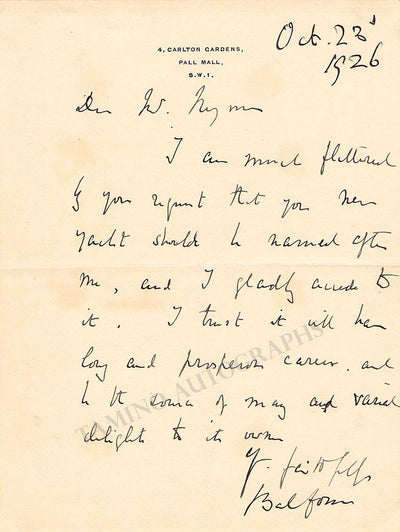 4, CARLTON GARDENS,
PALL MALL,
S.W.1.
Oct. 23d
1926
Dear Mr.
I am much flattered
by your request that your new
yacht should be named after
me, and I gladly accede to
it. I trust it will have
long and prosperous career, and
be the source of many and varied
delights to its owner
Yr. faithfully
Balfour
TAMINO AUTOGRAPHS